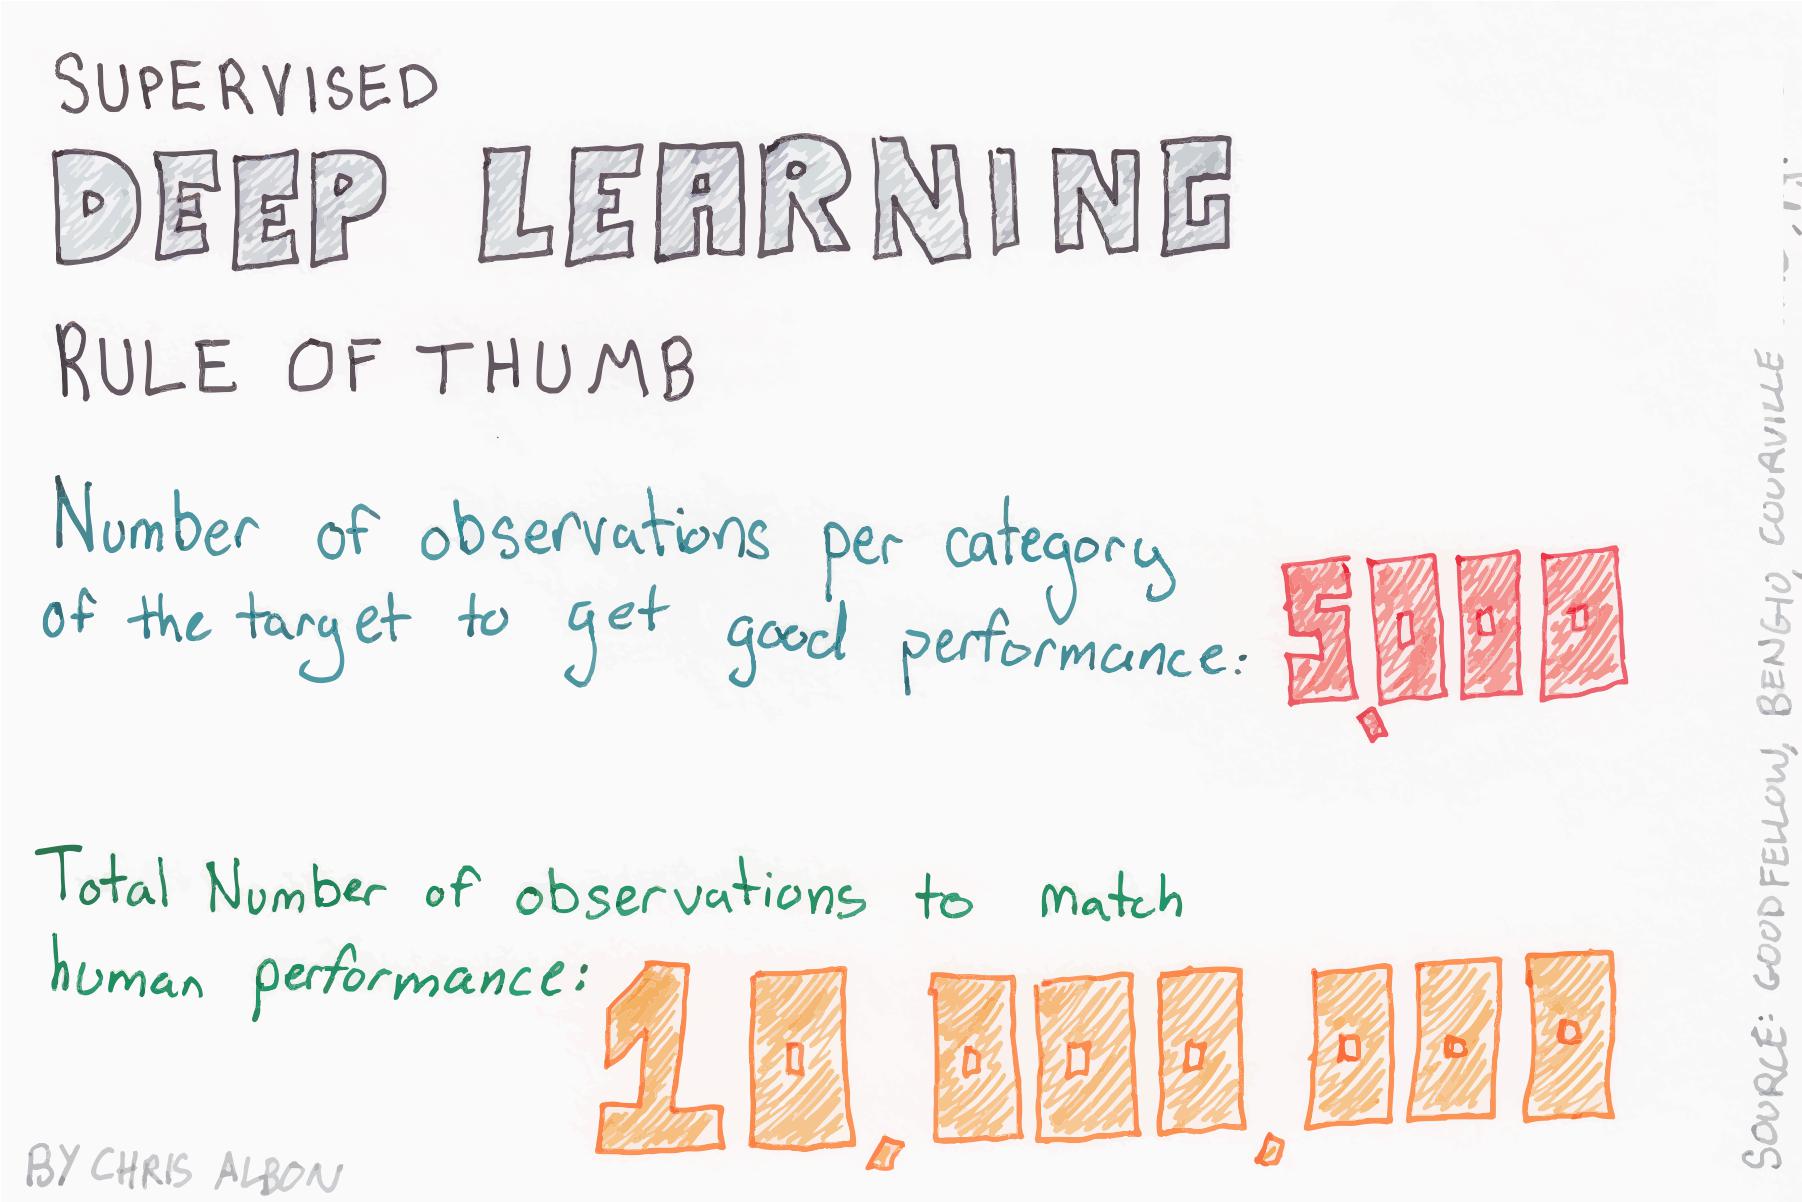 SUPERVISED
DEEP LEARNING
RULE OF THUMB
Number of observations per category
of the target to get good performance: 5,000
Total Number of observations to match
human performance: 10,000,000
BY CHRIS ALBON
SOURCE: GOODFELLOW, BENGIO, COURVILLE